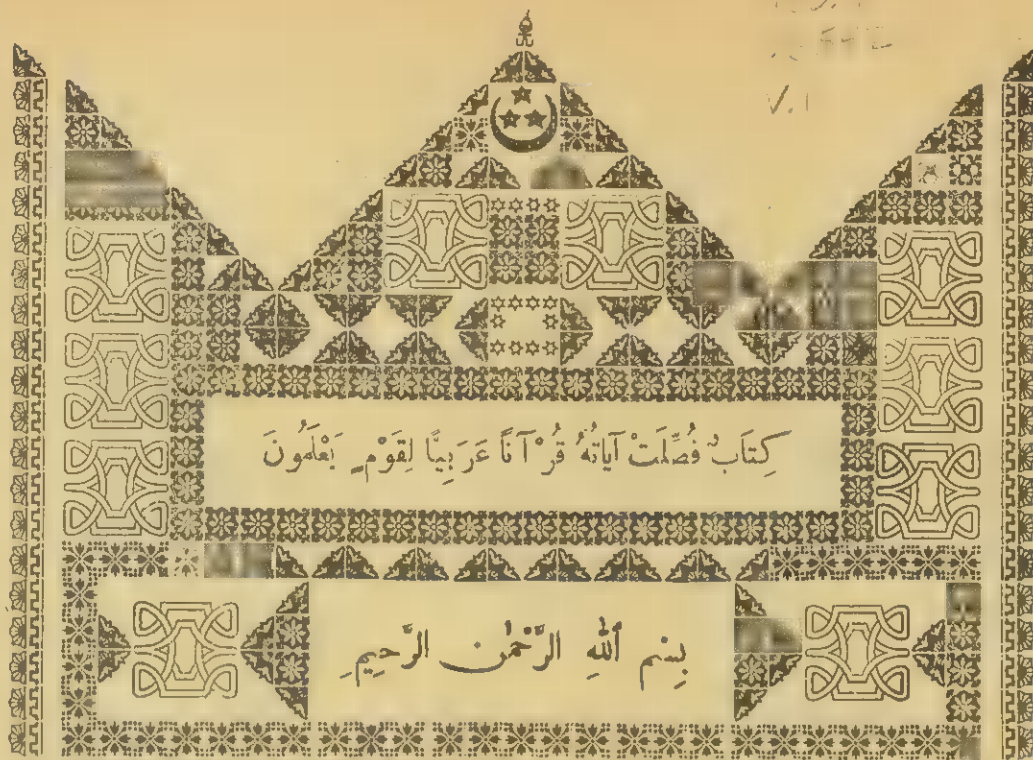 V.1
كِتَابٌ فُصِّلَتْ آيَاتُهُ قُرْآنًا عَرَبِيًّا لِقَوْمٍ يَعْلَمُونَ
بِسْمِ ٱللهِ الرَّحْمٰنِ الرَّحِيمِ